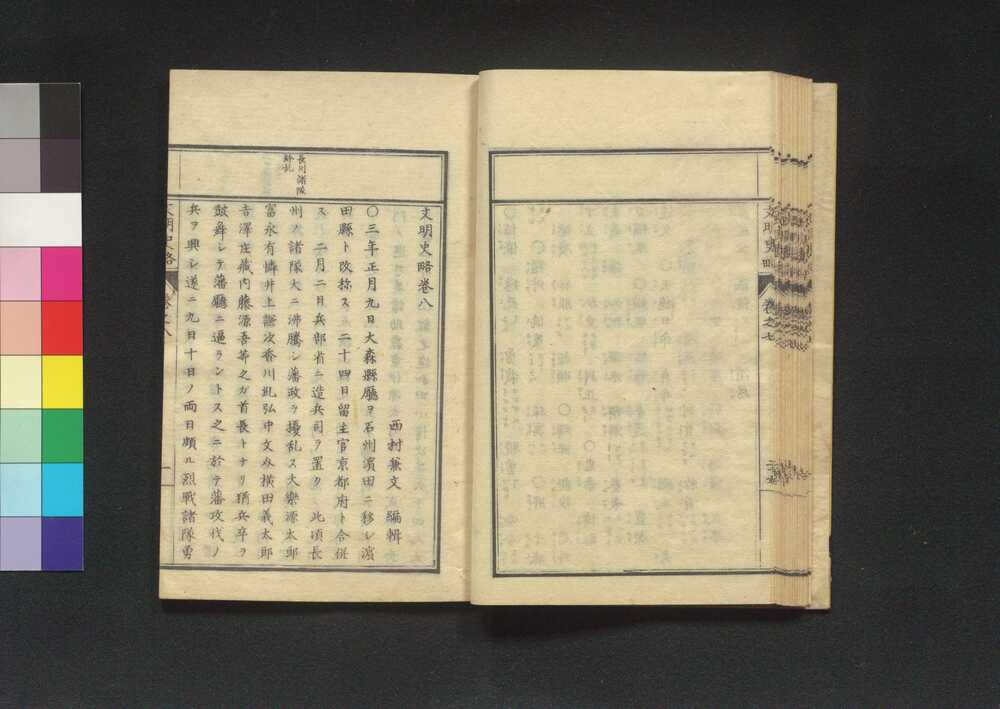 文明史略
卷之七
文明史略卷八
西村兼文 編輯
長州諸隊
蜂起
〇三年正月九日大森縣廳ヲ石州濱田ニ移シ濱
田縣ト改称ス 二十四日留主官京都府ト合併
ス 二月二日兵部省ニ造兵司ヲ置ク 此頃長
州ノ諸隊大ニ沸騰シ藩政ヲ擾乱ス大樂源太郎
富永有憐井上謙次香川乱弘中文亽横田義太郎
吉澤庄藏内藤源吾等之ガ首長トナリ猶兵卒ヲ
鼓舞シテ藩廳ニ逼ラントス之ニ於テ藩攻伐ノ
兵ヲ興シ遂ニ九日十日ノ両日頗ル烈戦諸隊勇
文明史略
卷之八